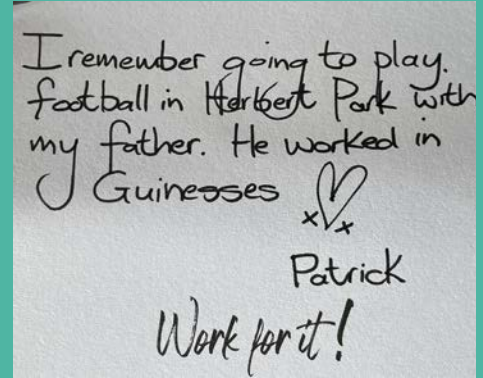 I remember going to play.
football in Herbert Park with
my father. He worked in
Guinesses
x x
Patrick
Work for it!